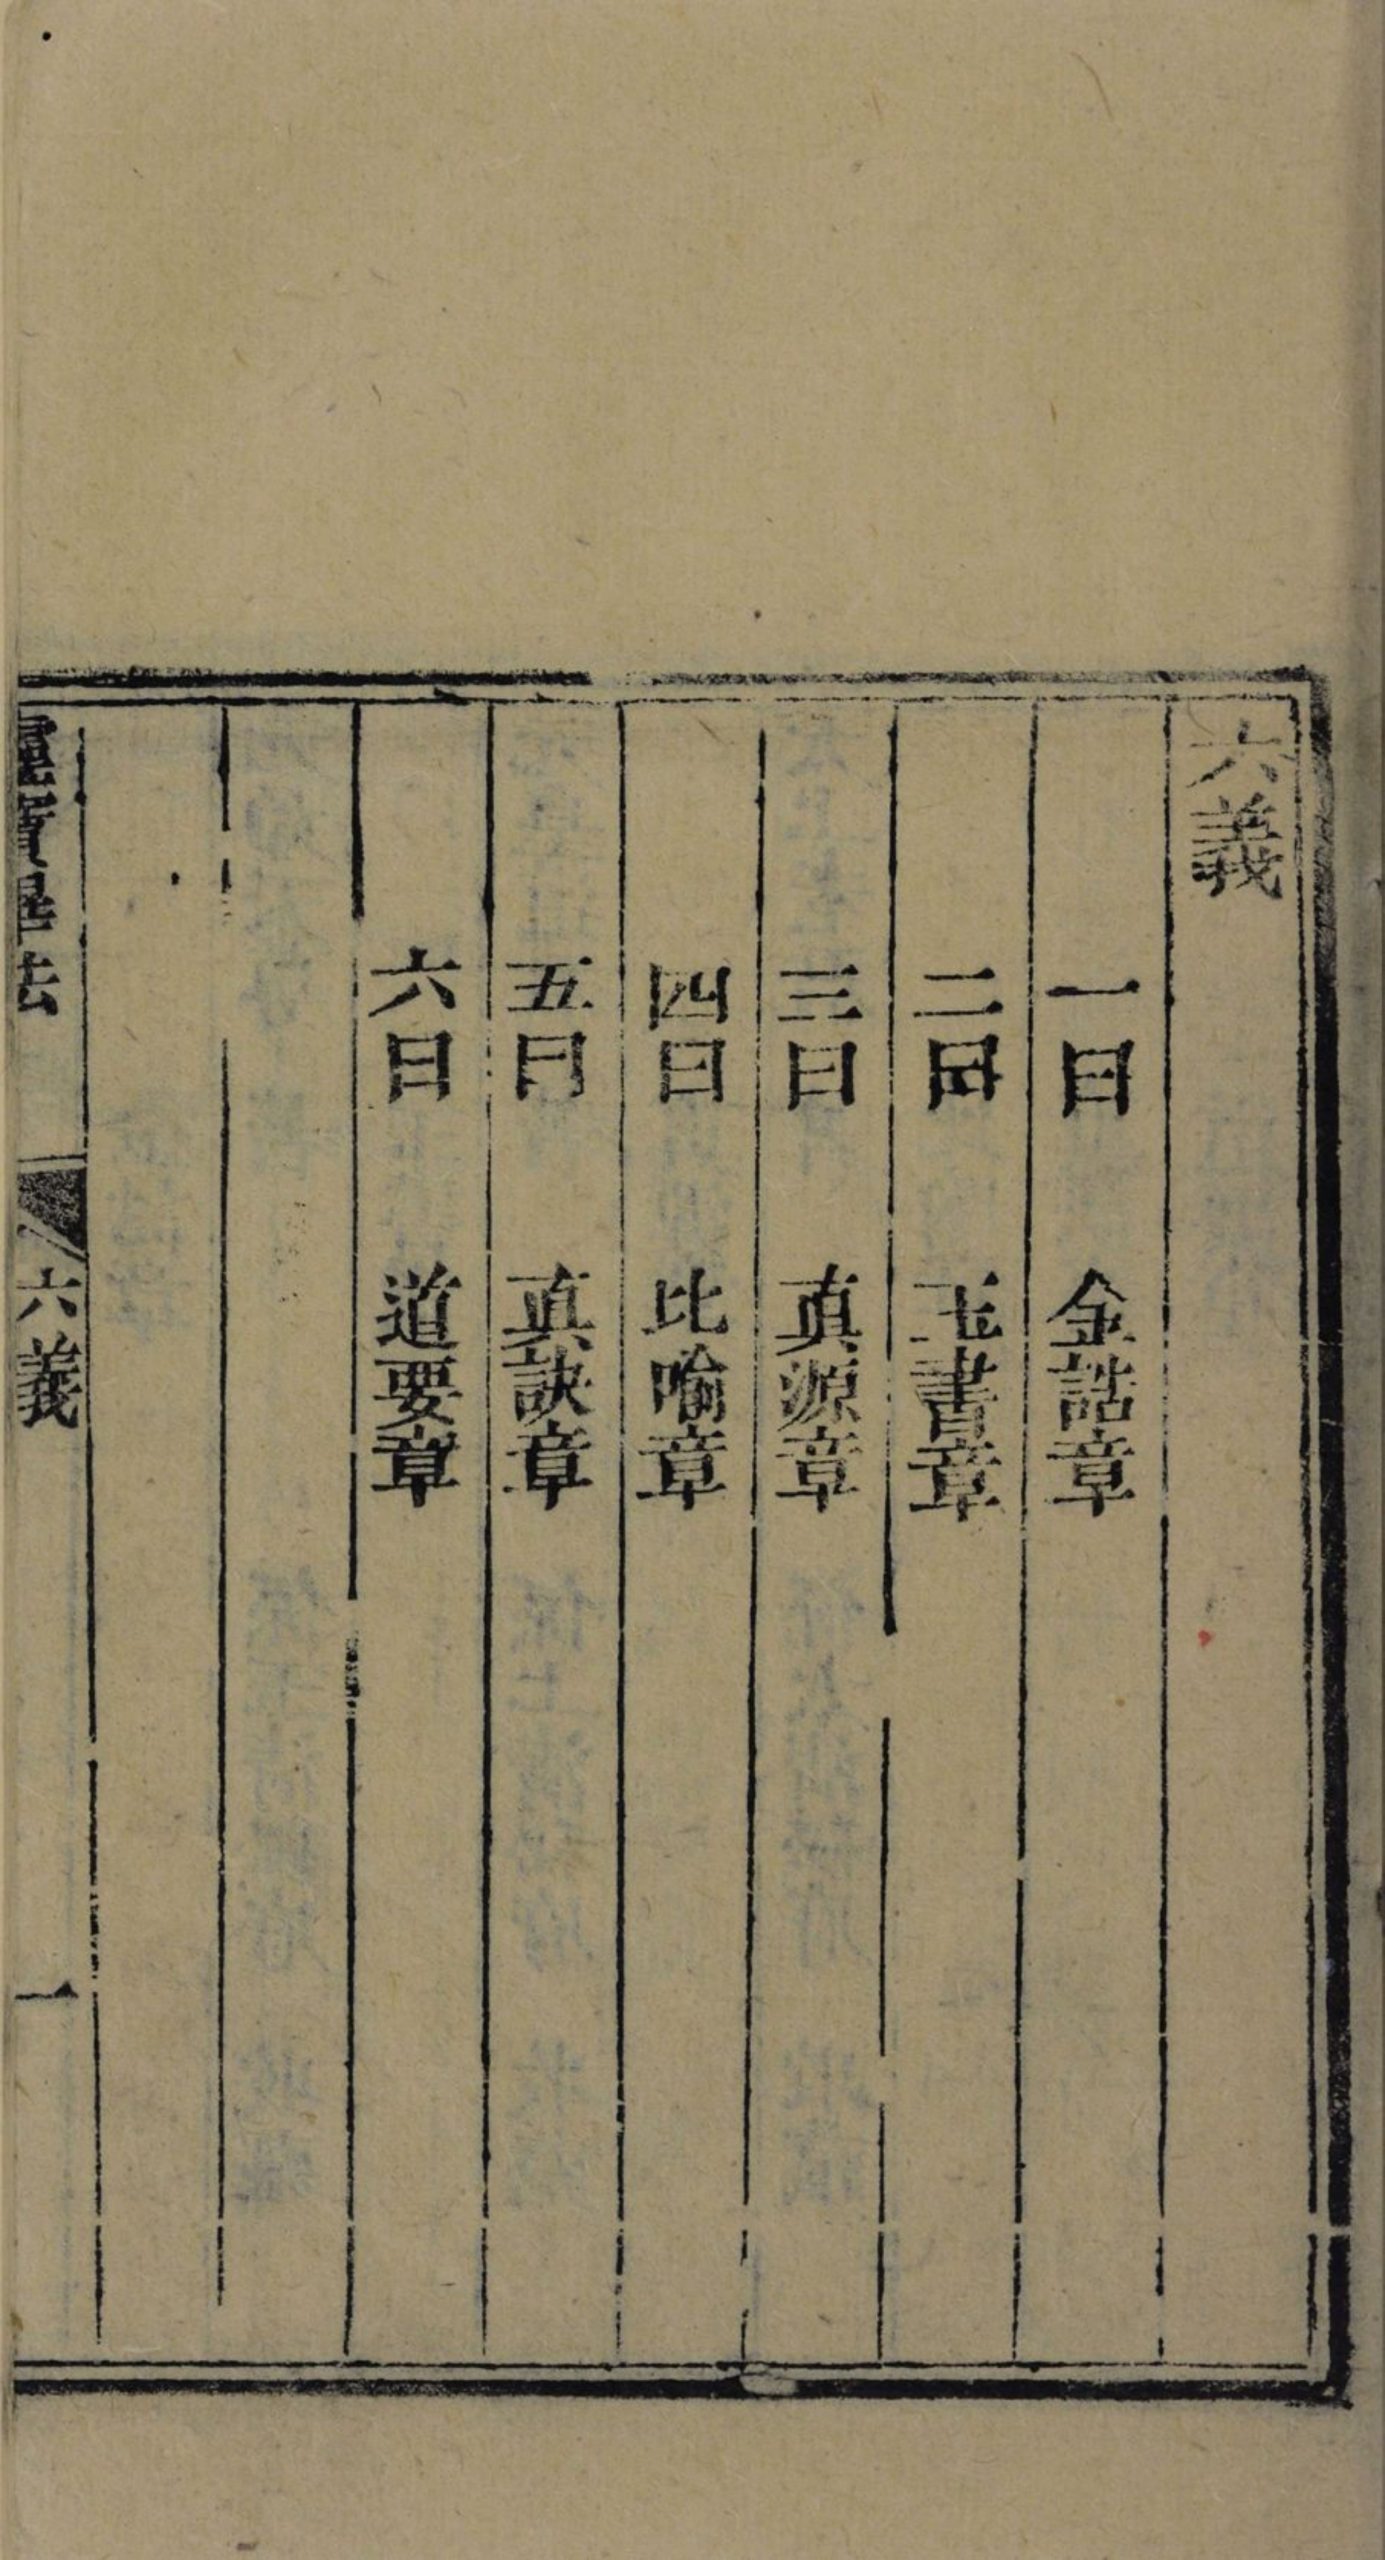 六義
一曰　金誥章
二曰　玉書章
三曰　真源章
四曰　比喻章
五曰　真訣章
六曰　道要章
靈寶畢法　六義　一